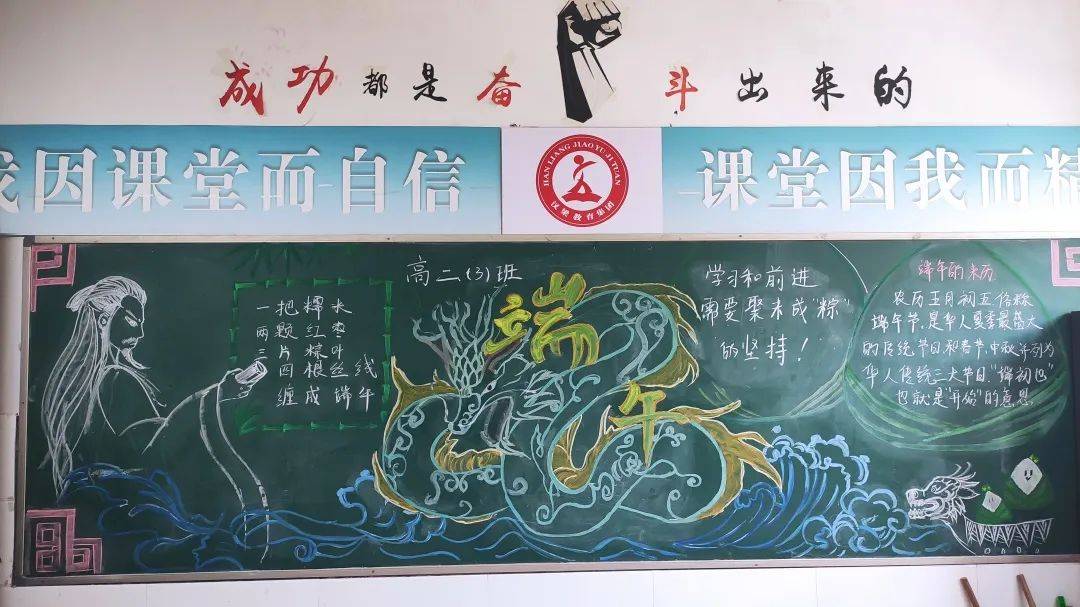 成功都是奋斗出来的
我因课堂而自信
HAN LIANG JIAO YU JI TUAN
汉梁教育集团
课堂因我而精
高二(3)班
端午
一把糯米
两颗红枣
三片粽叶
四根丝线
缠成端午
学习和前进
需要聚米成"粽"
的坚持！
端午的来历
农历五月初五俗称
端午节，是华人夏季最盛大
的传统节日和春节，中秋并列为
华人传统三大节日."端初也"
也就是"开始"的意思